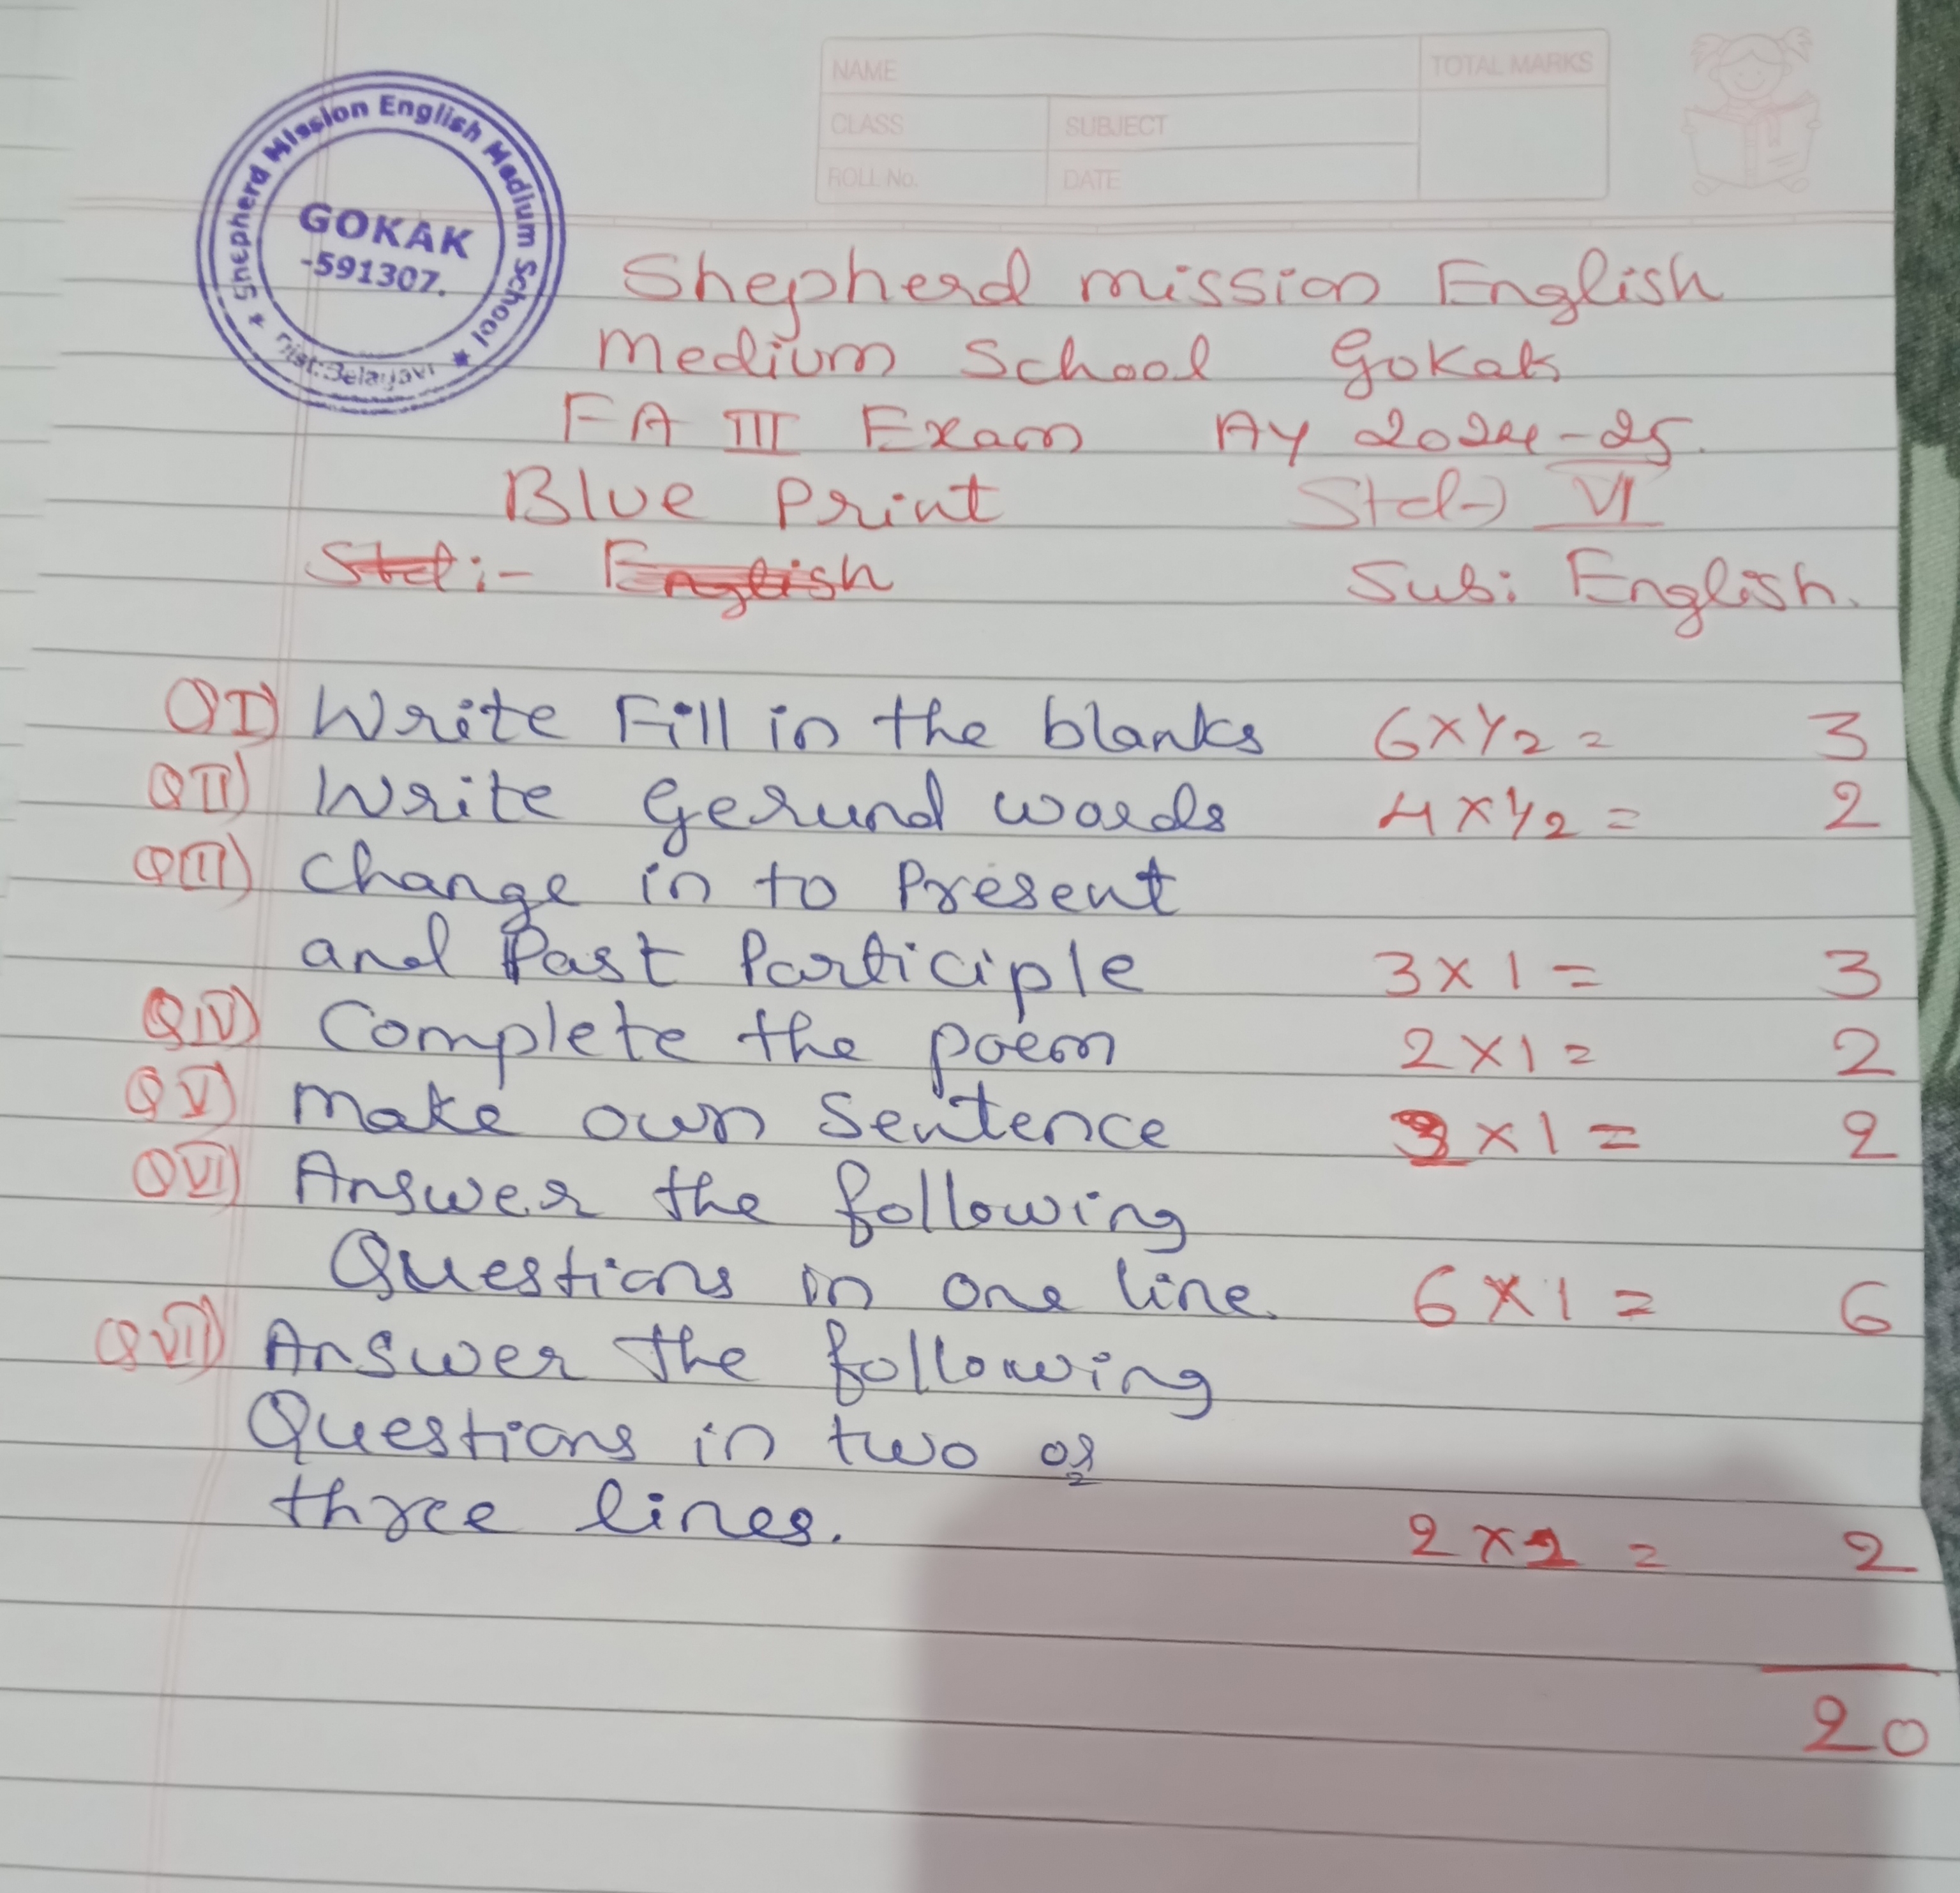 NAME
TOTAL MARKS
CLASS
SUBJECT
ROLL No.
DATE
★ Shepherd Mission English Medium School ★
GOKAK
-591307.
Dist:Belagavi
Shepherd mission English
Medium School Gokak
FA III Exam AY 2024-25.
Blue Print Std-) VI
Std:- English Sub: English.
QI) Write Fill in the blanks 6x1/2 = 3
QII) Write Gerund words 4x1/2 = 2
QIII) Change in to Present
and Past Participle 3x1 = 3
QIV) Complete the poem 2x1 = 2
QV) Make own Sentence x1 = 2
QVI) Answer the following
Questions in one line. 6x1 = 6
QVII) Answer the following
Questions in two or
three lines. 2 x = 2
20